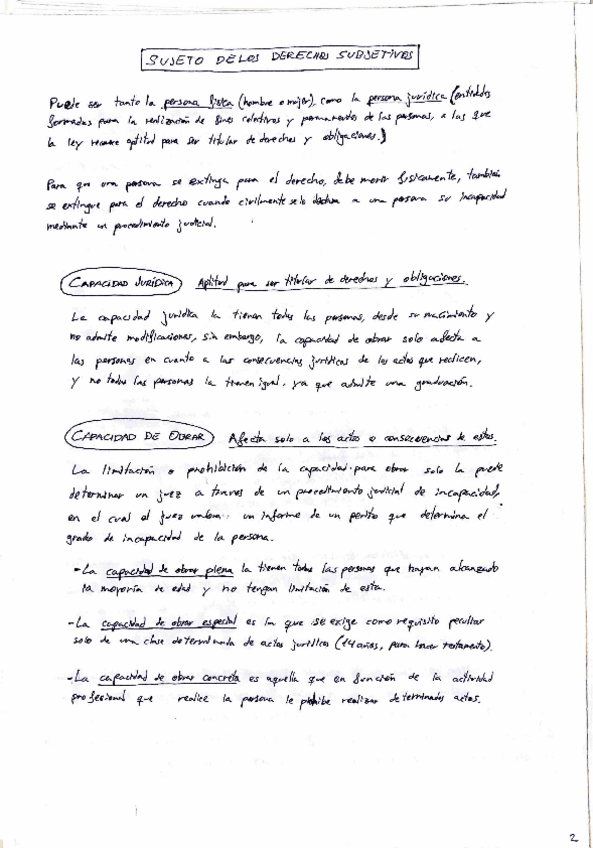 SUJETO DE LOS DERECHOS SUBJETIVOS
Puede ser tanto la persona física (hombre o mujer), como la persona jurídica (entidades
formadas para la realización de fines colectivos y permanentes de las personas, a las que
la ley reconoce aptitud para ser titular de derechos y obligaciones.)
Para que una persona se extinga para el derecho, debe morir físicamente, también
se extingue para el derecho cuando civilmente se lo declara a una persona su incapacidad
mediante un procedimiento judicial.
CAPACIDAD JURÍDICA Aptitud para ser titular de derechos y obligaciones.
La capacidad jurídica la tienen todas las personas, desde su nacimiento y
no admite modificaciones, sin embargo, la capacidad de obrar solo afecta a
las personas en cuanto a las consecuencias jurídicas de los actos que realicen,
y no todas las personas la tienen igual, ya que admite una graduación.
CAPACIDAD DE OBRAR Afecta solo a los actos o consecuencias de estos.
La limitación o prohibición de la capacidad para obrar solo la puede
determinar un juez a traves de un procedimiento judicial de incapacidad,
en el cual el juez valora un informe de un perito que determina el
grado de incapacidad de la persona.
-La capacidad de obrar plena la tienen todas las personas que hayan alcanzado
la mayoría de edad y no tengan limitación de esta.
-La capacidad de obrar especial es la que se exige como requisito peculiar
solo de una clase determinada de actos jurídicos (14 años, para hacer testamento).
-La capacidad de obrar concreta es aquella que en función de la actividad
profesional que realice la persona le prohibe realizar determinados actos.
2